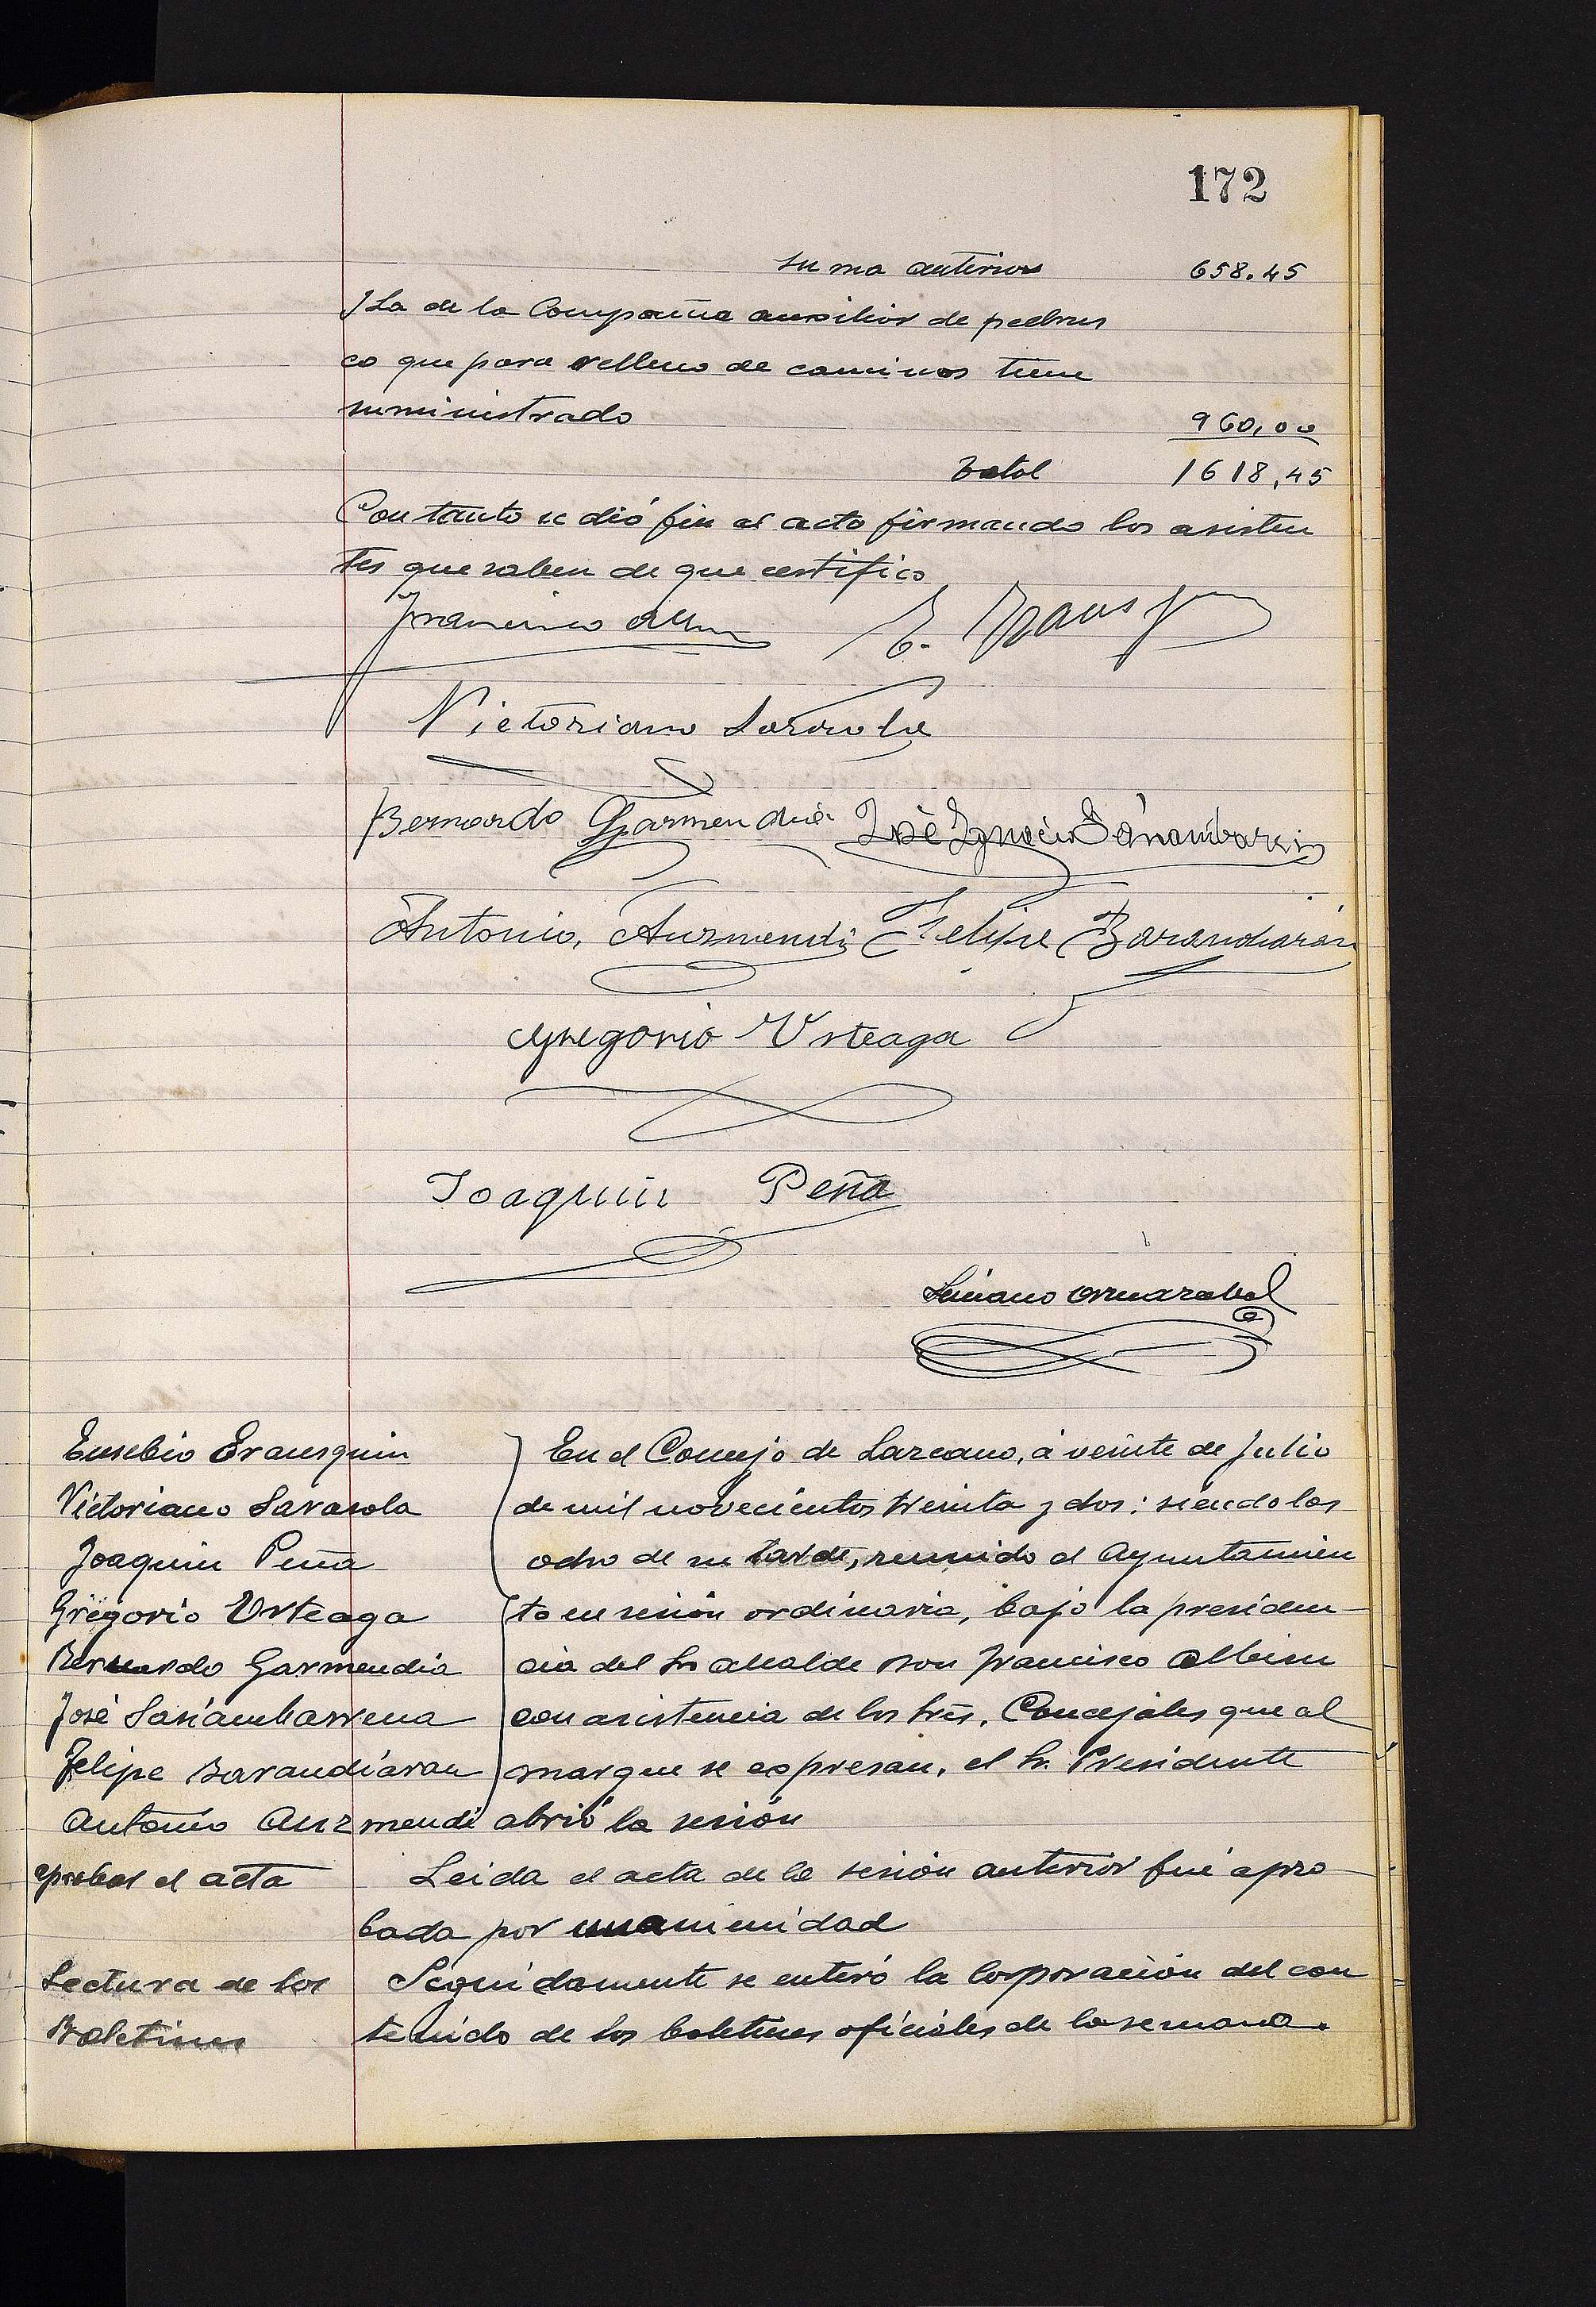 172
suma anterior 658.45
Y La de la Compañia auxiliar de pedrus
co que para relleno de caminos tiene
suministrado 960,00
Total 1618,45
Con tanto se dió fin al acto firmando los asisten
tes que saben de que certifico
Francisco E.
Victoriano Sarasola
Bernardo Garmendia José Ignacio
Antonio Auzmendi Felipe Barandiarán
Gregorio Urteaga
Joaquin Peña
Luciano
Eusebio Erausquin
Victoriano Sarasola
Joaquin Peña
Gregorio Urteaga
Bernardo Garmendia
José Sasiambarrena
Felipe Barandiáran
Antonio Auzmendi
En el Concejo de Lazcano, á veinte de Julio
de mil novecientos treinta y dos: siendo las
ocho de su tarde, reunido el Ayuntamien
to en sesión ordinaria, bajo la presiden
cia del Sr alcalde Don Francisco Albisu
con asistencia de los Sres. Concejales que al
margen se expresan, el Sr. Presidente
abrió la sesión
aprobar el acta
Leida el acta de la sesión anterior fué apro
bada por unanimidad
Lectura de los
Boletines
Seguidamente se enteró la Corporación del con
tenido de los boletines oficiales de la semana.